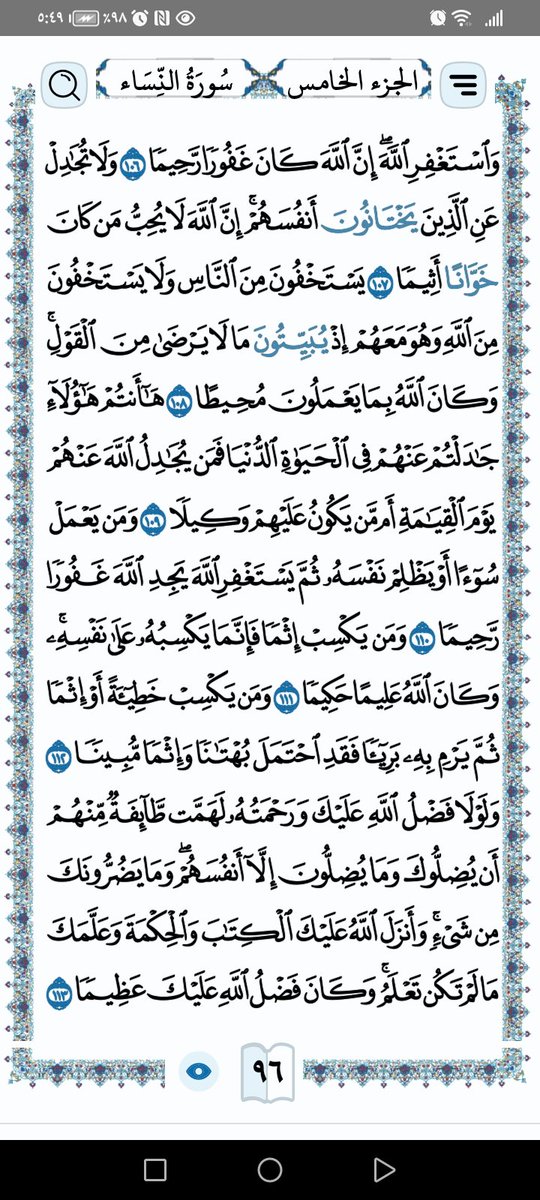 ٥:٤٩ ٪٩٨
الجزء الخامس سُورَةُ النِّسَاء
وَٱسۡتَغۡفِرِ ٱللَّهَۖ إِنَّ ٱللَّهَ كَانَ غَفُورٗا رَّحِيمٗا ١٠٦ وَلَا تُجَٰدِلۡ
عَنِ ٱلَّذِينَ يَخۡتَانُونَ أَنفُسَهُمۡۚ إِنَّ ٱللَّهَ لَا يُحِبُّ مَن كَانَ
خَوَّانًا أَثِيمٗا ١٠٧ يَسۡتَخۡفُونَ مِنَ ٱلنَّاسِ وَلَا يَسۡتَخۡفُونَ
مِنَ ٱللَّهِ وَهُوَ مَعَهُمۡ إِذۡ يُبَيِّتُونَ مَا لَا يَرۡضَىٰ مِنَ ٱلۡقَوۡلِۚ
وَكَانَ ٱللَّهُ بِمَا يَعۡمَلُونَ مُحِيطًا ١٠٨ هَٰٓأَنتُمۡ هَٰٓؤُلَآءِ
جَٰدَلۡتُمۡ عَنۡهُمۡ فِي ٱلۡحَيَوٰةِ ٱلدُّنۡيَا فَمَن يُجَٰدِلُ ٱللَّهَ عَنۡهُمۡ
يَوۡمَ ٱلۡقِيَٰمَةِ أَم مَّن يَكُونُ عَلَيۡهِمۡ وَكِيلٗا ١٠٩ وَمَن يَعۡمَلۡ
سُوٓءًا أَوۡ يَظۡلِمۡ نَفۡسَهُۥ ثُمَّ يَسۡتَغۡفِرِ ٱللَّهَ يَجِدِ ٱللَّهَ غَفُورٗا
رَّحِيمٗا ١١٠ وَمَن يَكۡسِبۡ إِثۡمٗا فَإِنَّمَا يَكۡسِبُهُۥ عَلَىٰ نَفۡسِهِۦۚ
وَكَانَ ٱللَّهُ عَلِيمًا حَكِيمٗا ١١١ وَمَن يَكۡسِبۡ خَطِيٓـَٔةً أَوۡ إِثۡمٗا
ثُمَّ يَرۡمِ بِهِۦ بَرِيٓـٔٗا فَقَدِ ٱحۡتَمَلَ بُهۡتَٰنٗا وَإِثۡمٗا مُّبِينٗا ١١٢
وَلَوۡلَا فَضۡلُ ٱللَّهِ عَلَيۡكَ وَرَحۡمَتُهُۥ لَهَمَّت طَّآئِفَةٞ مِّنۡهُمۡ
أَن يُضِلُّوكَ وَمَا يُضِلُّونَ إِلَّآ أَنفُسَهُمۡۖ وَمَا يَضُرُّونَكَ
مِن شَيۡءٖۚ وَأَنزَلَ ٱللَّهُ عَلَيۡكَ ٱلۡكِتَٰبَ وَٱلۡحِكۡمَةَ وَعَلَّمَكَ
مَا لَمۡ تَكُن تَعۡلَمُۚ وَكَانَ فَضۡلُ ٱللَّهِ عَلَيۡكَ عَظِيمٗا ١١٣
٩٦